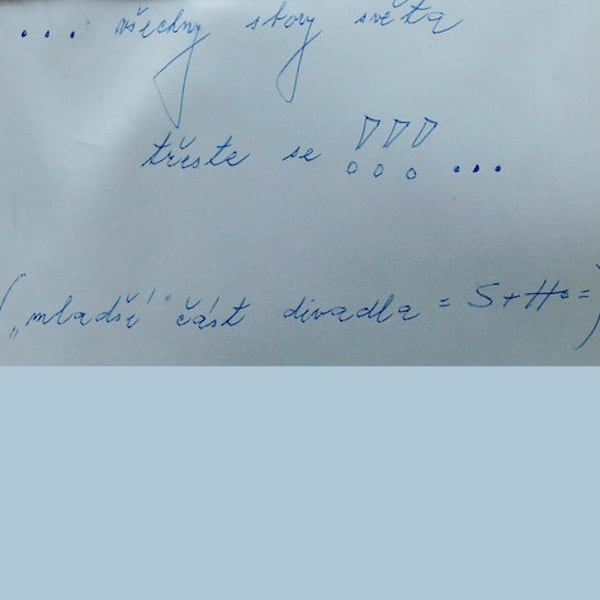 ... všechny sbory světa
třeste se !!! ...
("mladší" část divadla = S+H. =)